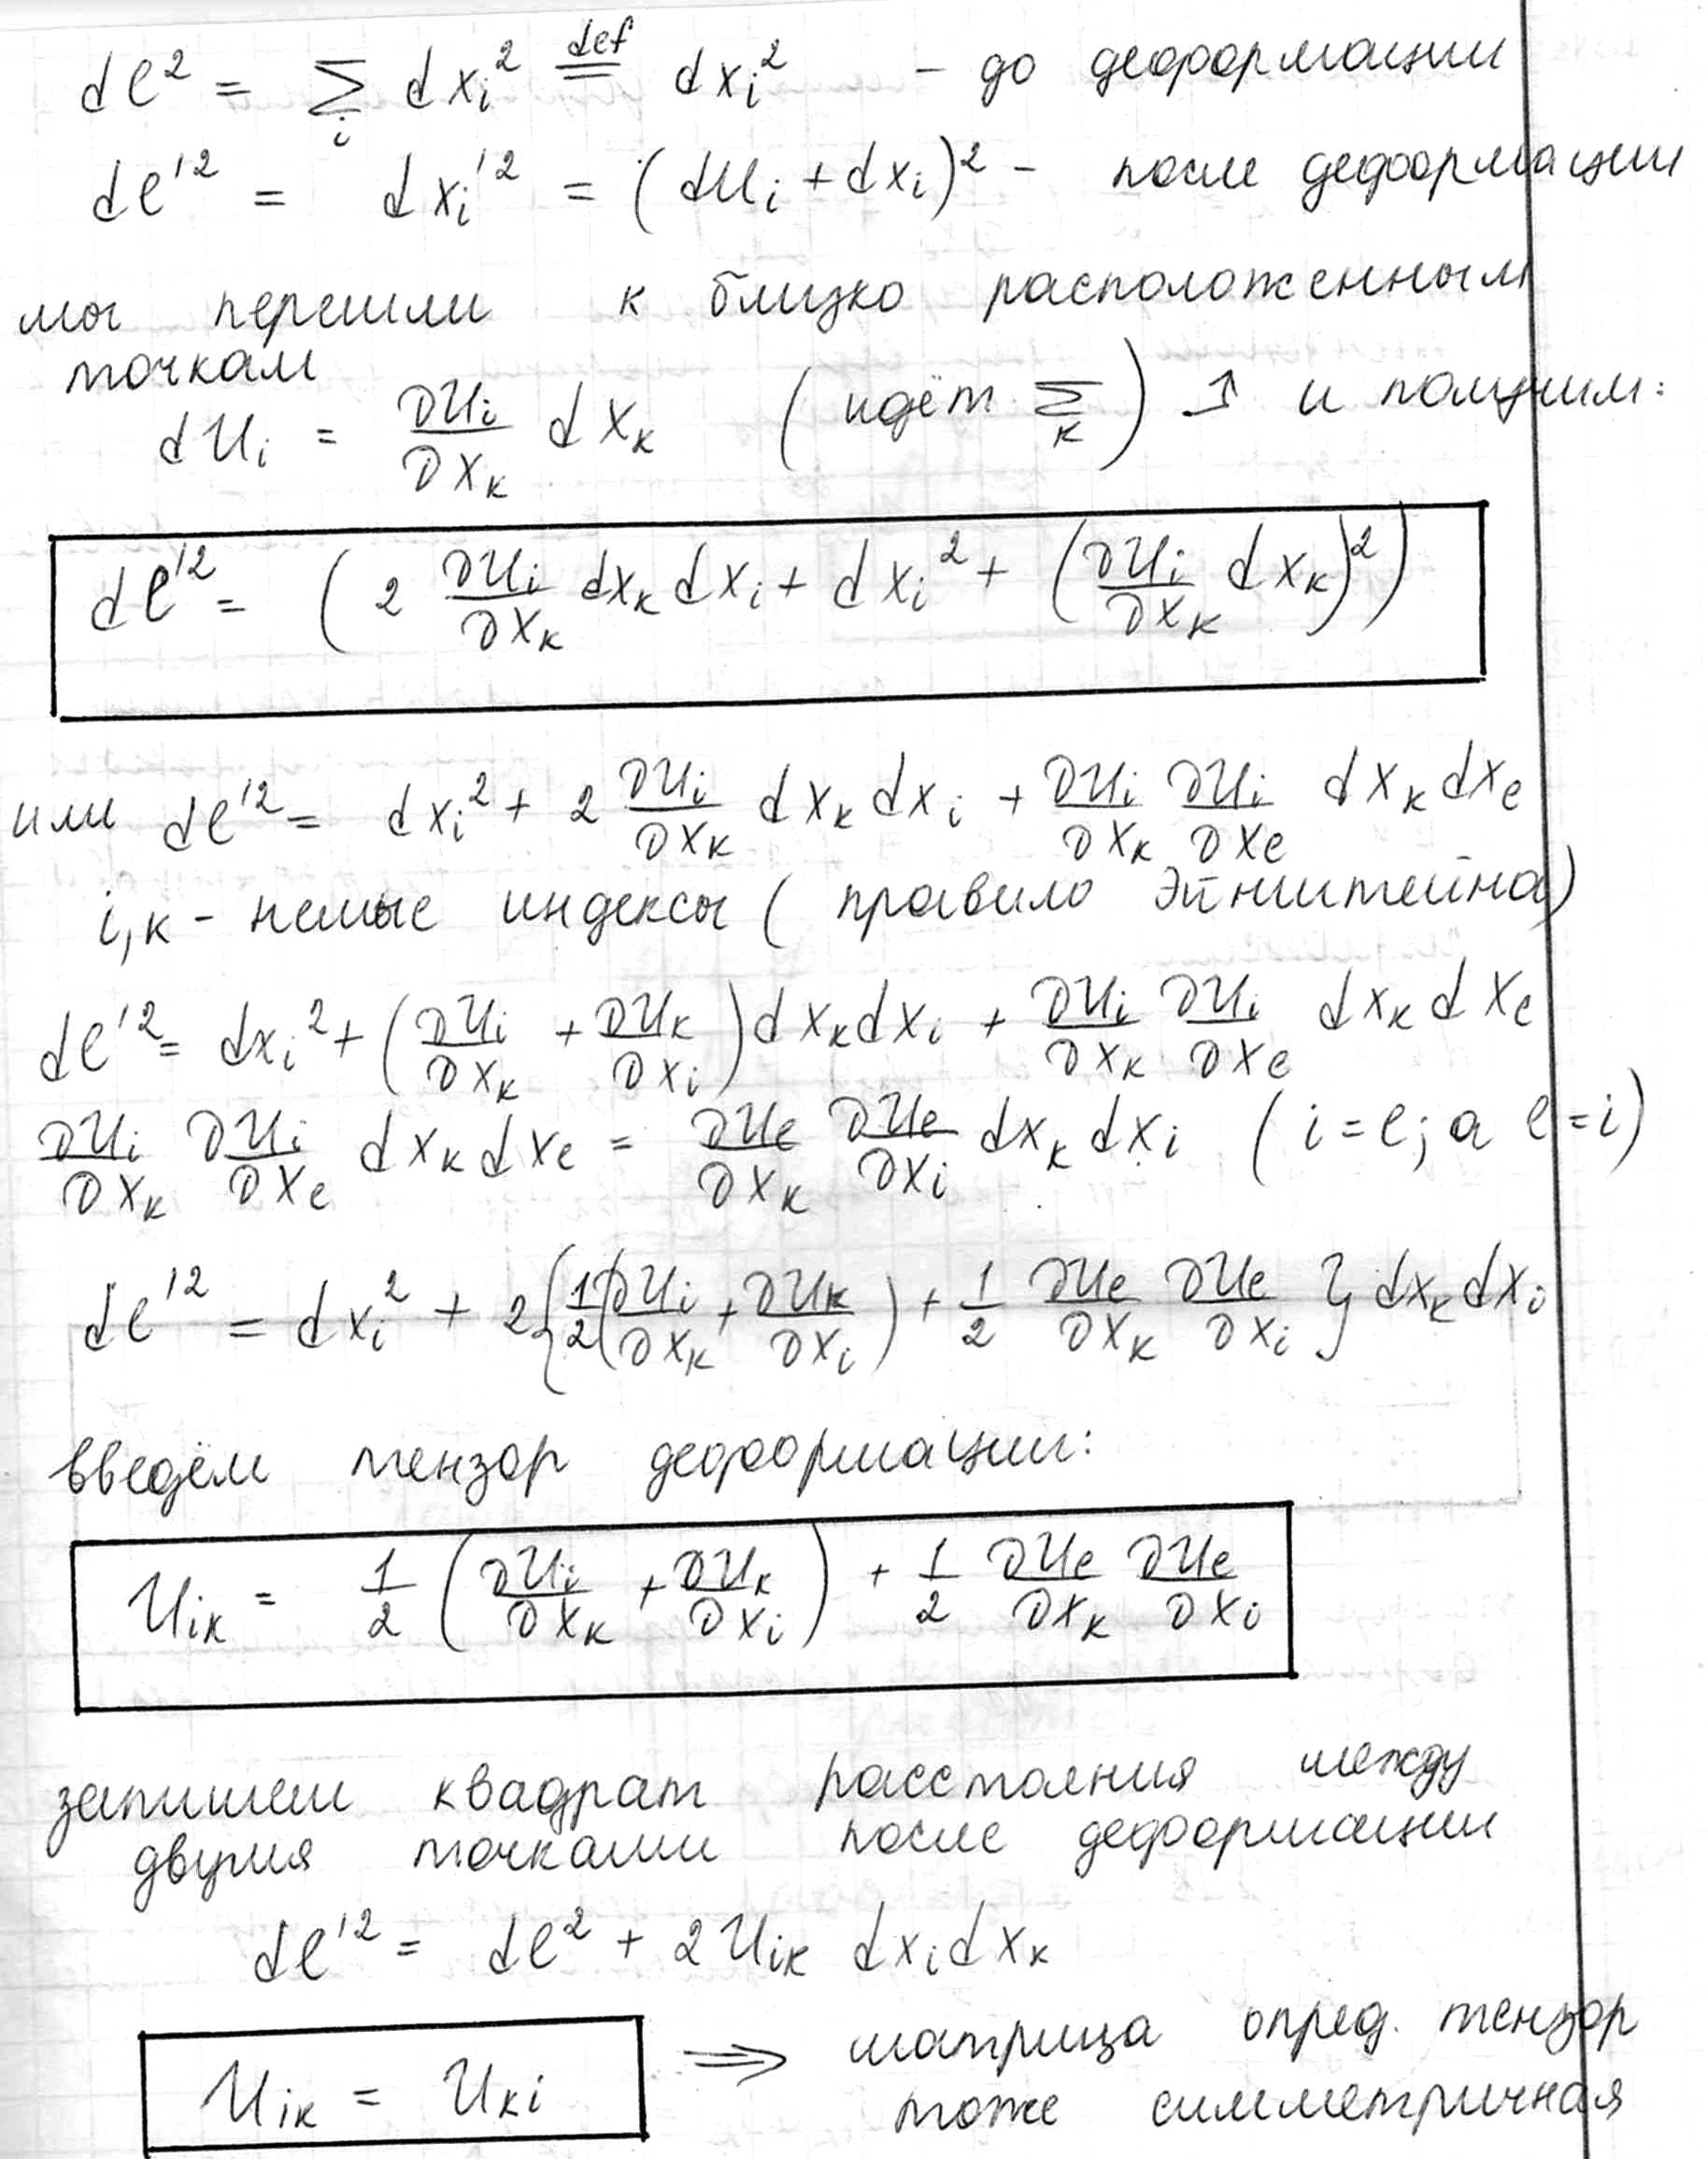 dl² = Σ_i dx_i² ≝ dx_i² – до деформации
dl'² = dx_i'² = (du_i + dx_i)² – после деформации
мы перешли к близко расположенным
точкам
du_i = ∂u_i/∂x_k dx_k (идёт Σ_k) ↑ и получим:
dl'² = (2 ∂u_i/∂x_k dx_k dx_i + dx_i² + (∂u_i/∂x_k dx_k)²)
или dl'² = dx_i² + 2 ∂u_i/∂x_k dx_k dx_i + ∂u_i/∂x_k ∂u_i/∂x_l dx_k dx_l
i,k – немые индексы (правило Эйнштейна)
dl'² = dx_i² + (∂u_i/∂x_k + ∂u_k/∂x_i) dx_k dx_i + ∂u_i/∂x_k ∂u_i/∂x_l dx_k dx_l
∂u_i/∂x_k ∂u_i/∂x_l dx_k dx_l = ∂u_l/∂x_k ∂u_l/∂x_i dx_k dx_i (i=l; а l=i)
dl'² = dx_i² + 2{1/2(∂u_i/∂x_k + ∂u_k/∂x_i) + 1/2 ∂u_l/∂x_k ∂u_l/∂x_i} dx_k dx_i
введём тензор деформации:
u_ik = 1/2 (∂u_i/∂x_k + ∂u_k/∂x_i) + 1/2 ∂u_l/∂x_k ∂u_l/∂x_i
запишем квадрат расстояния между
двумя точками после деформации
dl'² = dl² + 2u_ik dx_i dx_k
u_ik = u_ki ⇒ матрица опред. тензор
тоже симметричная